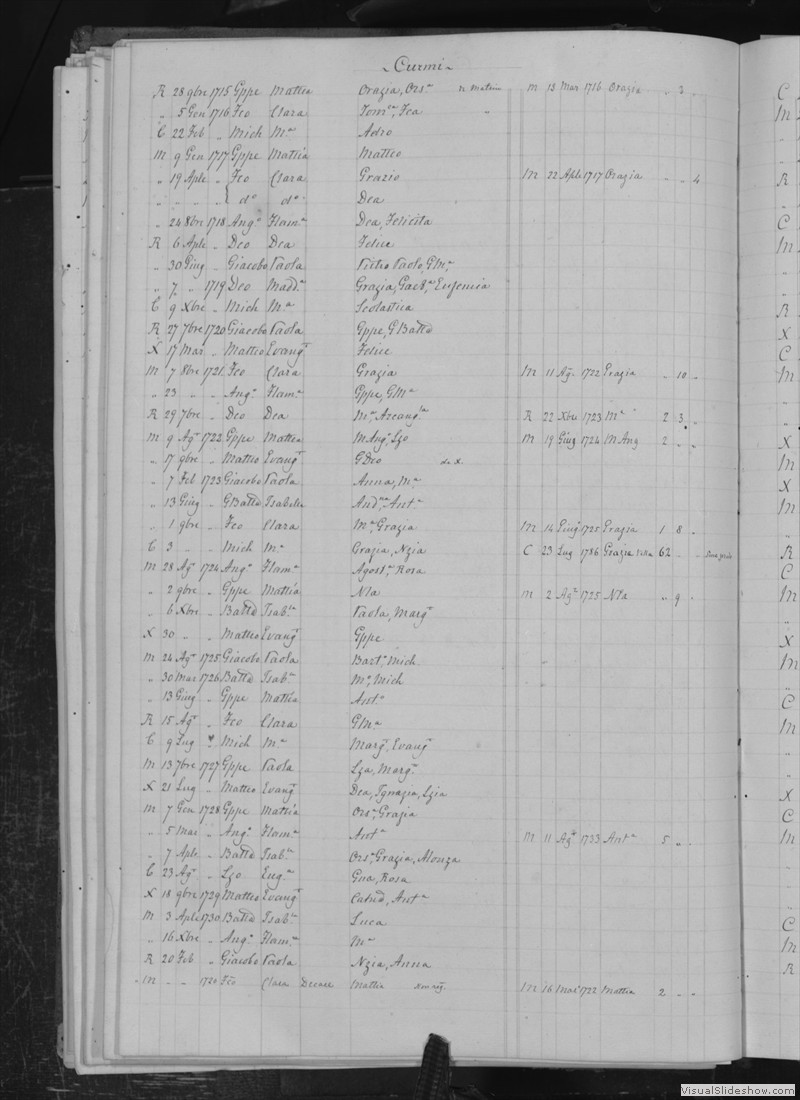 Curmi
R 28 9bre 1715 Gppe Mattia Orazia, Ors.a M 13 Mar 1716 Orazia „ 3 „
„ 5 Gen 1716 Fco Clara Tom.ca, Fca „
C 22 Feb „ Mich M.a Adro
M 9 Gen 1717 Gppe Mattia Matteo
„ 19 Aple „ Fco Clara Grazio M 22 Aple 1717 Orazia „ „ 4
„ „ „ „ d.o d.o Dea
„ 24 8bre 1718 Ang.o Flam.a Dea, Felicita
R 6 Aple „ Deo Dea Felice
„ 30 Giug „ Giacobo Paola Pietro Paolo, GM.a
„ 7 „ 1719 Deo Madd.a Grazia, Eufemia
C 9 Xbre „ Mich M.a Scolastica
R 27 7bre 1720 Giacobo Paola Gppe, GBatta
X 17 Mar „ Matteo Evang.ta Felice
M 7 8bre 1721 Fco Clara Grazia M 11 Ag.o 1722 Grazia „ 10 „
„ 23 „ „ Ang.o Flam.a Gppe, GM.a
R 29 7bre „ Deo Dea M.a, Arcang.la R 22 Xbre 1723 M.a 2 3 „
M 9 Ag.o 1722 Gppe Mattia M Ang.o, Lzo M 19 Giug 1724 M Ang 2 „ „
„ 17 9bre „ Matteo Evang.ta G Deo de X.
„ 7 Feb 1723 Giacobo Paola Anna, M.a
„ 13 Giug „ GBatta Isabella And.na, Ant.a
„ 1 9bre „ Fco Clara M.a Grazia M 14 Giug 1725 Grazia 1 8 „
C 3 „ „ Mich M.a Grazia, Nzia C 23 Lug 1786 Grazia 62 „ „
M 28 Ag.o 1724 Ang.o Flam.a Agost.a, Rosa
„ 2 9bre „ Gppe Mattia Nla M 2 Ag.o 1725 Nla „ 9 „
„ 6 Xbre „ Batta Isab.la Paola, Marg.ta
X 30 „ „ Matteo Evang.ta Gppe
M 24 Ag.o 1725 Giacobo Paola Bart.o, Mich
„ 30 Mar 1726 Batta Isab.la M.a, Mich
„ 13 Giug „ Gppe Mattia Ant.o
R 15 Ag.o „ Fco Clara GM.a
C 9 Lug „ Mich M.a Marg.ta, Evang.ta
M 13 7bre 1727 Gppe Paola Lza, Marg.ta
X 21 Lug „ Matteo Evang.ta Dea, Ignazia, Lzia
M 7 Gen 1728 Gppe Mattia Ors.a, Grazia
„ 5 Mar „ Ang.o Flam.a Ant.a M 11 Ag.o 1733 Ant.a 5 „ „
„ 7 Aple „ Batta Isab.la Ors.a, Grazia, Alonza
C 23 Ag.o „ Lzo Eug.a Gna, Rosa
X 18 9bre 1729 Matteo Evang.ta Catnd, Ant.a
M 3 Aple 1730 Batta Isab.la Luca
„ 16 Xbre „ Ang.o Flam.a M.a
R 20 Feb „ Giacobo Paola Nzia, Anna
M „ „ 1720 Fco Clara Mattia M 16 Mar 1722 Mattia 2 „ „
VisualSlideshow.com